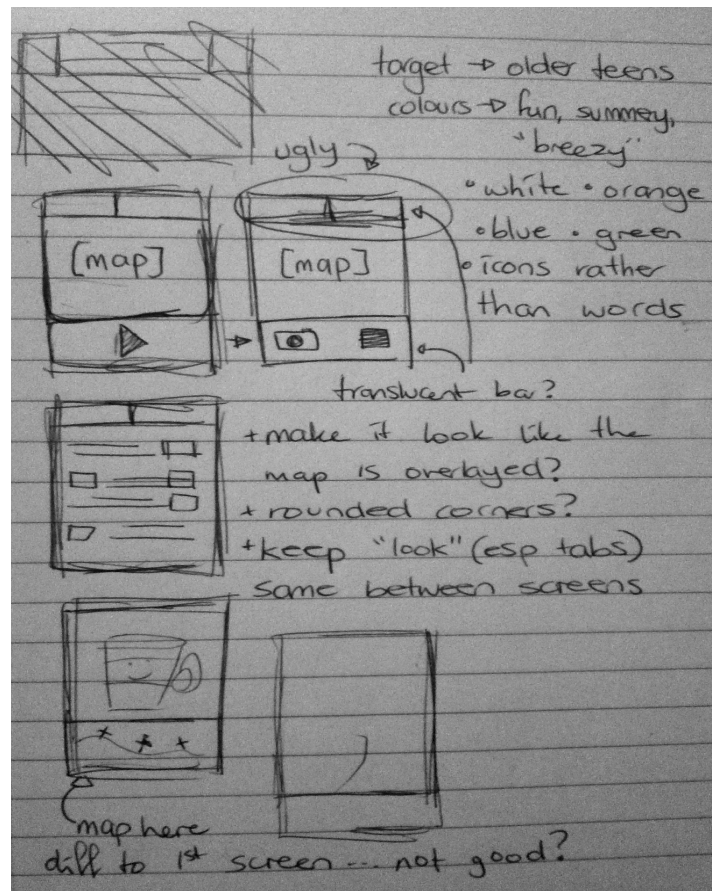 target → older teens
colours → fun, summey,
"breezy"
• white • orange
• blue • green
• icons rather
than words
ugly
[map]
[map]
translucent bar?
+ make it look like the
map is overlayed?
+ rounded corners?
+ keep "look" (esp tabs)
same between screens
map here
diff to 1st screen... not good?